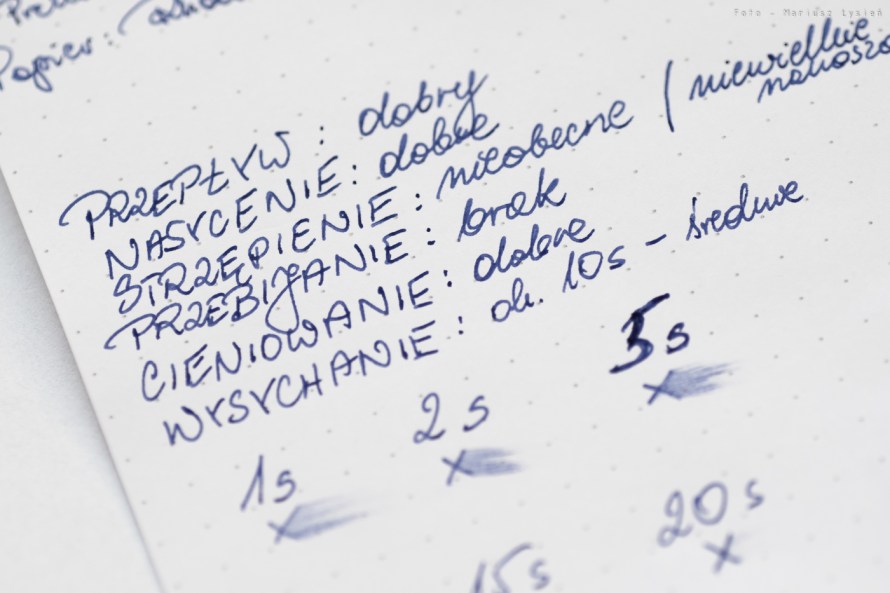 Foto - Mariusz Łysień
Papier:
PRZEPŁYW : dobry
NASYCENIE : dobre
STRZĘPIENIE : nieobecne / niewielkie
PRZEBIJANIE : brak
CIENIOWANIE : dobre
WYSYCHANIE : ok. 10s - średnie
1s
2s
5s
15s
20s